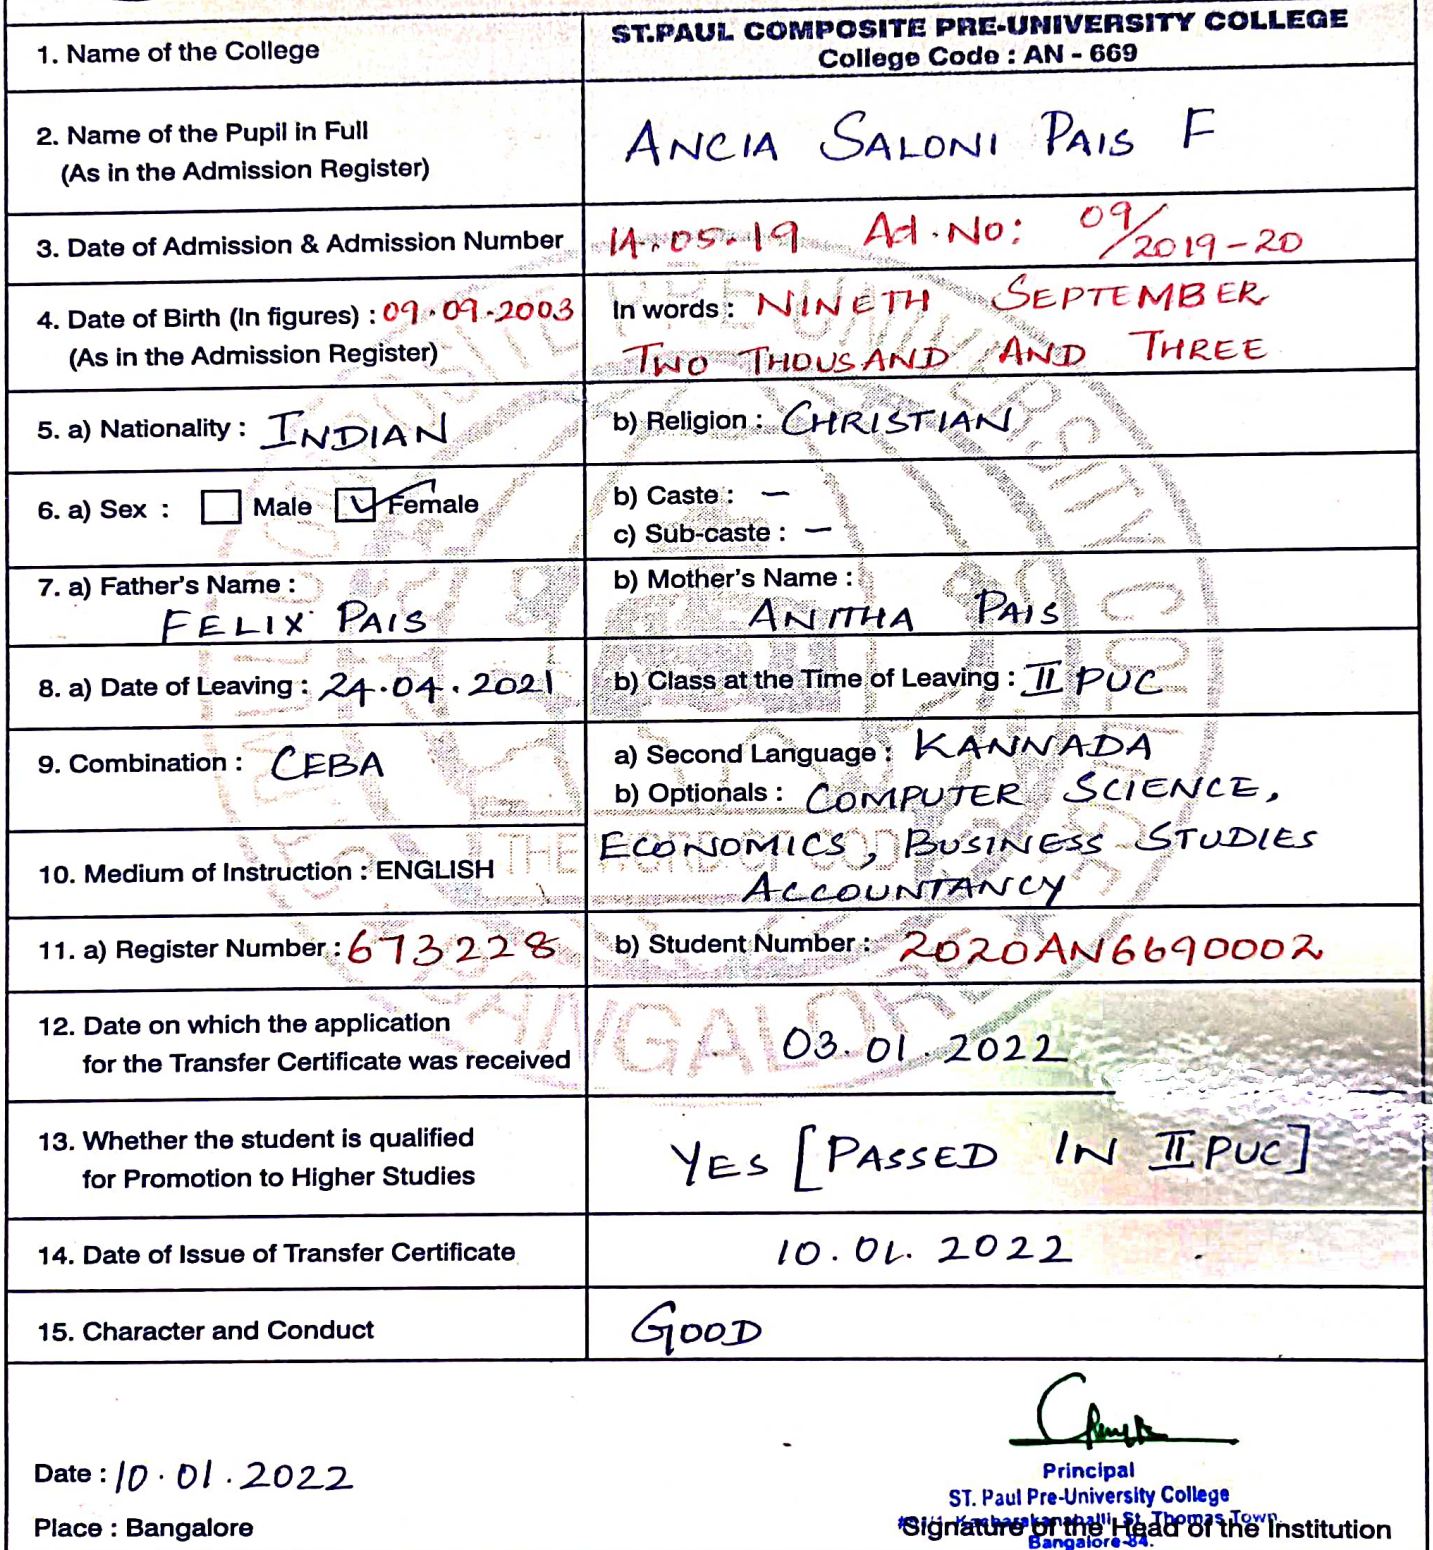 ST.PAUL COMPOSITE PRE-UNIVERSITY COLLEGE
1. Name of the College
College Code : AN - 669
2. Name of the Pupil in Full
(As in the Admission Register)
ANCIA SALONI PAIS F
3. Date of Admission & Admission Number
14.05.19 Ad.No: 09/2019-20
4. Date of Birth (In figures) : 09.09.2003
(As in the Admission Register)
In words : NINETH SEPTEMBER
TWO THOUSAND AND THREE
5. a) Nationality : INDIAN
b) Religion : CHRISTIAN
6. a) Sex : Male Female
b) Caste : –
c) Sub-caste : –
7. a) Father's Name :
FELIX PAIS
b) Mother's Name :
ANITHA PAIS
8. a) Date of Leaving : 24.04.2021
b) Class at the Time of Leaving : II PUC
9. Combination : CEBA
a) Second Language : KANNADA
b) Optionals : COMPUTER SCIENCE,
ECONOMICS, BUSINESS STUDIES
ACCOUNTANCY
10. Medium of Instruction : ENGLISH
11. a) Register Number : 673228
b) Student Number : 2020AN6690002
12. Date on which the application
for the Transfer Certificate was received
03.01.2022
13. Whether the student is qualified
for Promotion to Higher Studies
YES [PASSED IN II PUC]
14. Date of Issue of Transfer Certificate
10.01.2022
15. Character and Conduct
GOOD
Date : 10.01.2022
Place : Bangalore
Principal
ST. Paul Pre-University College
St. Thomas Town
Signature of the Head of the Institution
Bangalore-84.